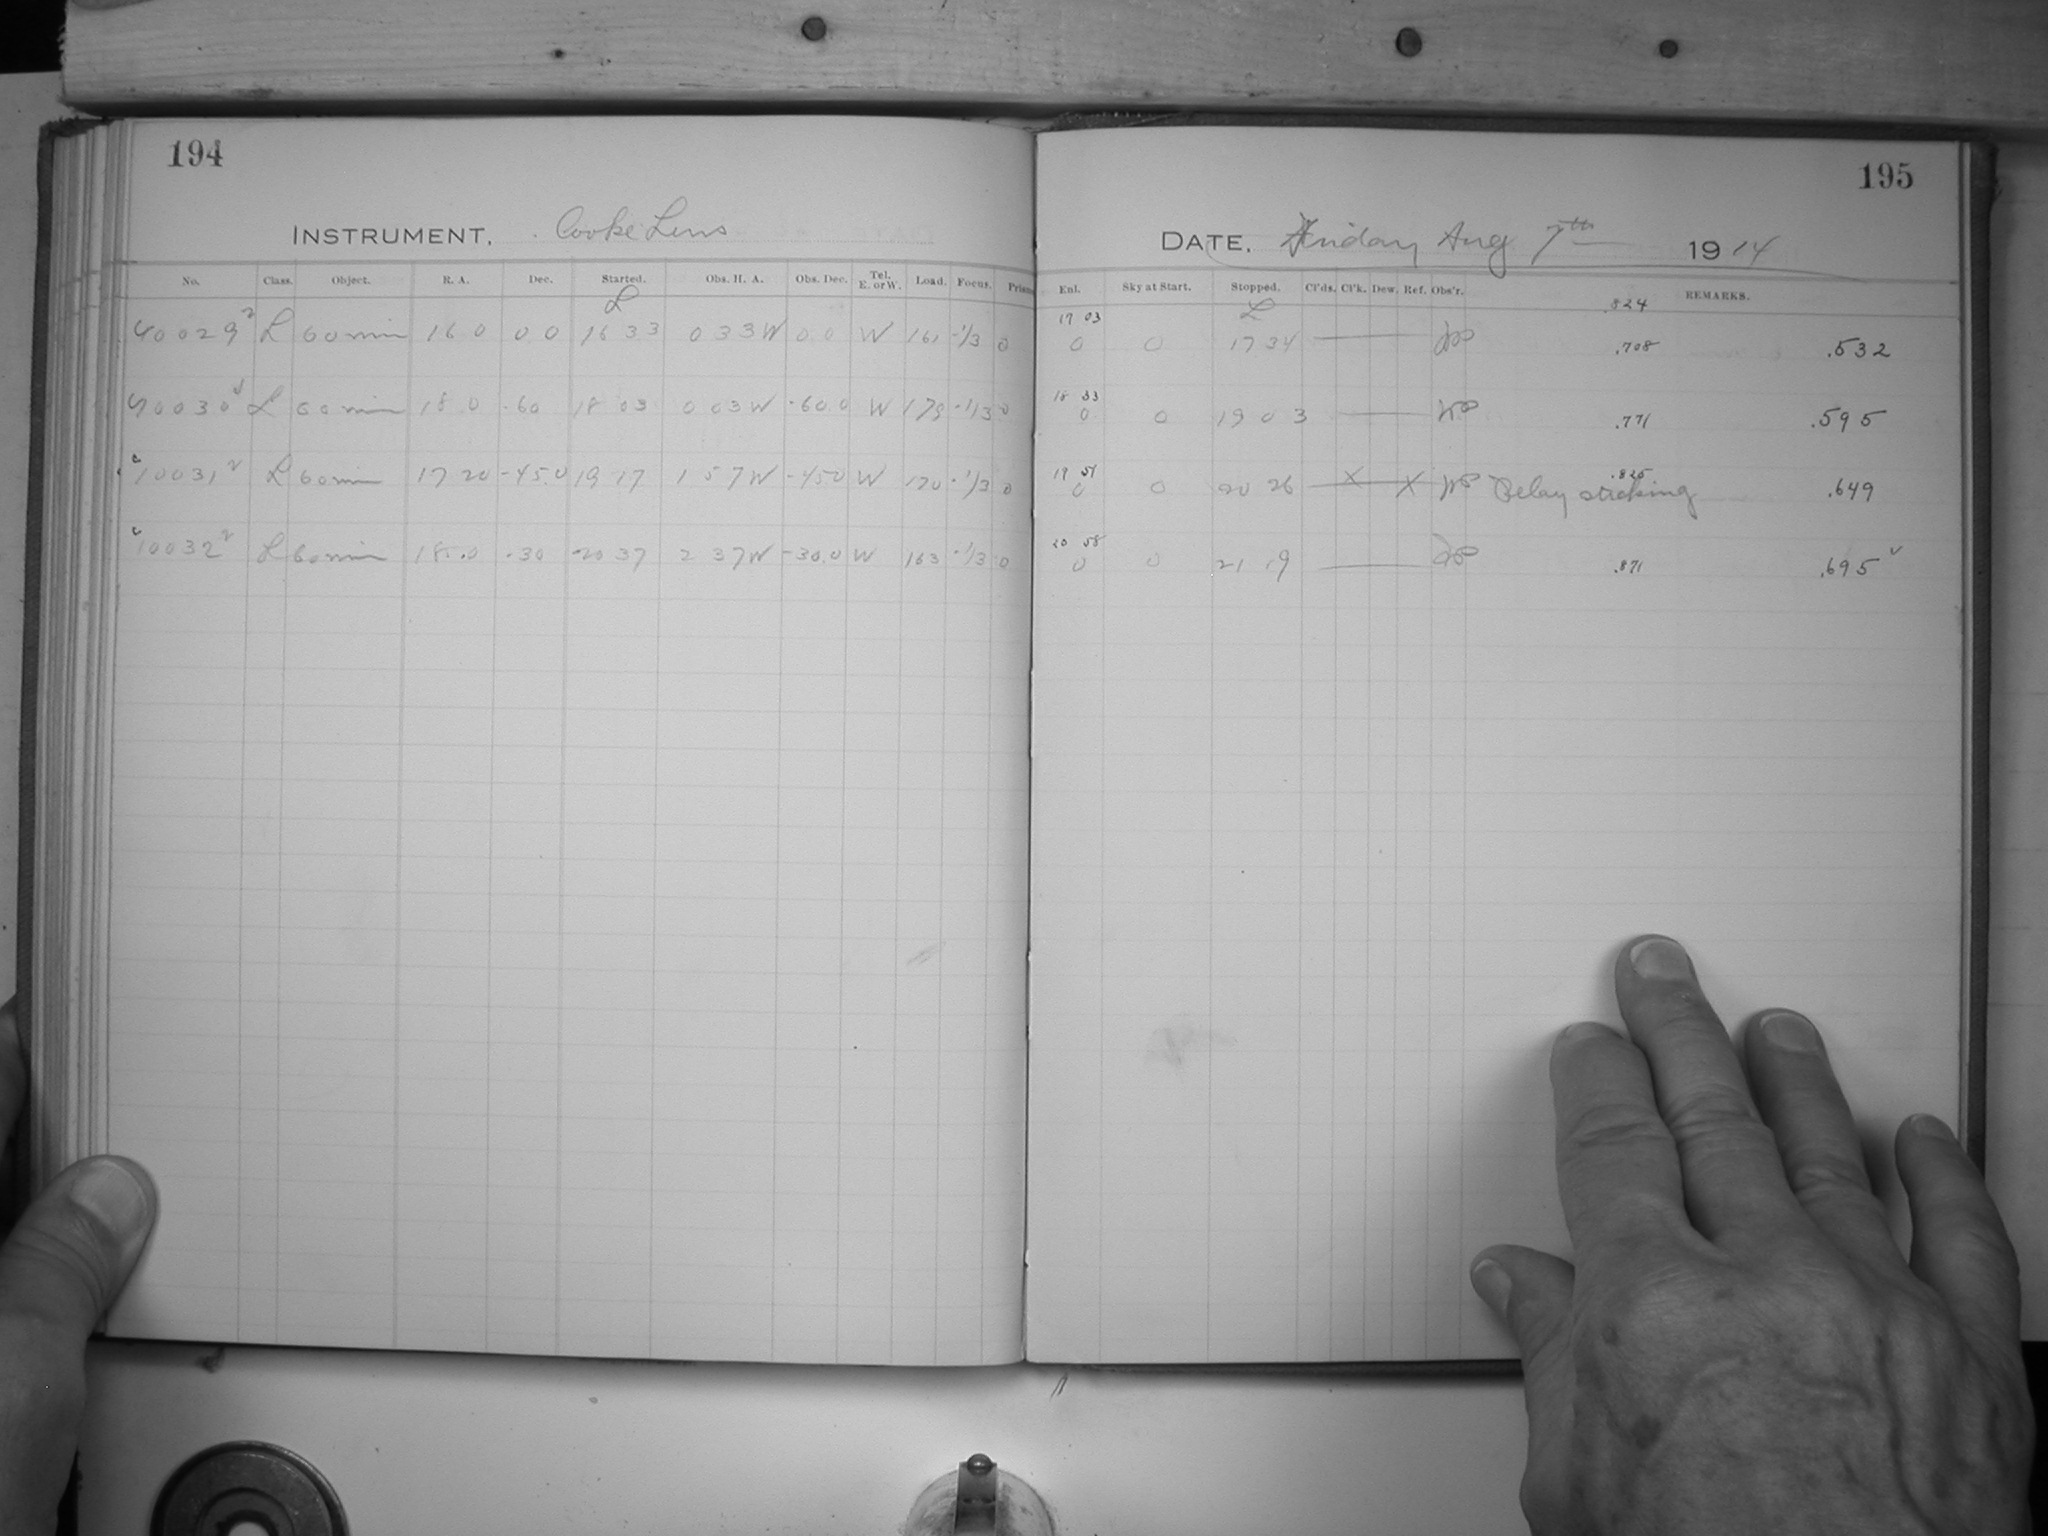 194
INSTRUMENT, Cooke Lens
No. Class. Object. R. A. Dec. Started. Obs. H. A. Obs. Dec. Tel. E. or W. Load. Focus.
L
L 60 min 16 0 0 0 16 33 0 33 W 0.0 W 161 -1/3 0
L 60 min 18 0 -60 18 03 0 03 W -60.0 W 179 -1/3 0
10031 L 60 min 17 20 -45.0 19 17 1 57 W -45.0 W 170 -1/3 0
10032 L 60 min 18.0 -30 20 37 2 37 W -30.0 W 163 -1/3 0
195
DATE. Friday Aug 7th 1914
Enl. Sky at Start. Stopped. Cl'ds. Cl'k. Dew. Ref. Obs'r. REMARKS.
L .824
17 03
0 0 17 34 .708 .532
18 33
0 0 19 03 .771 .595
19 51 .825
0 0 20 26 X X Relay sticking .649
20 58
0 0 21 19 .871 .695